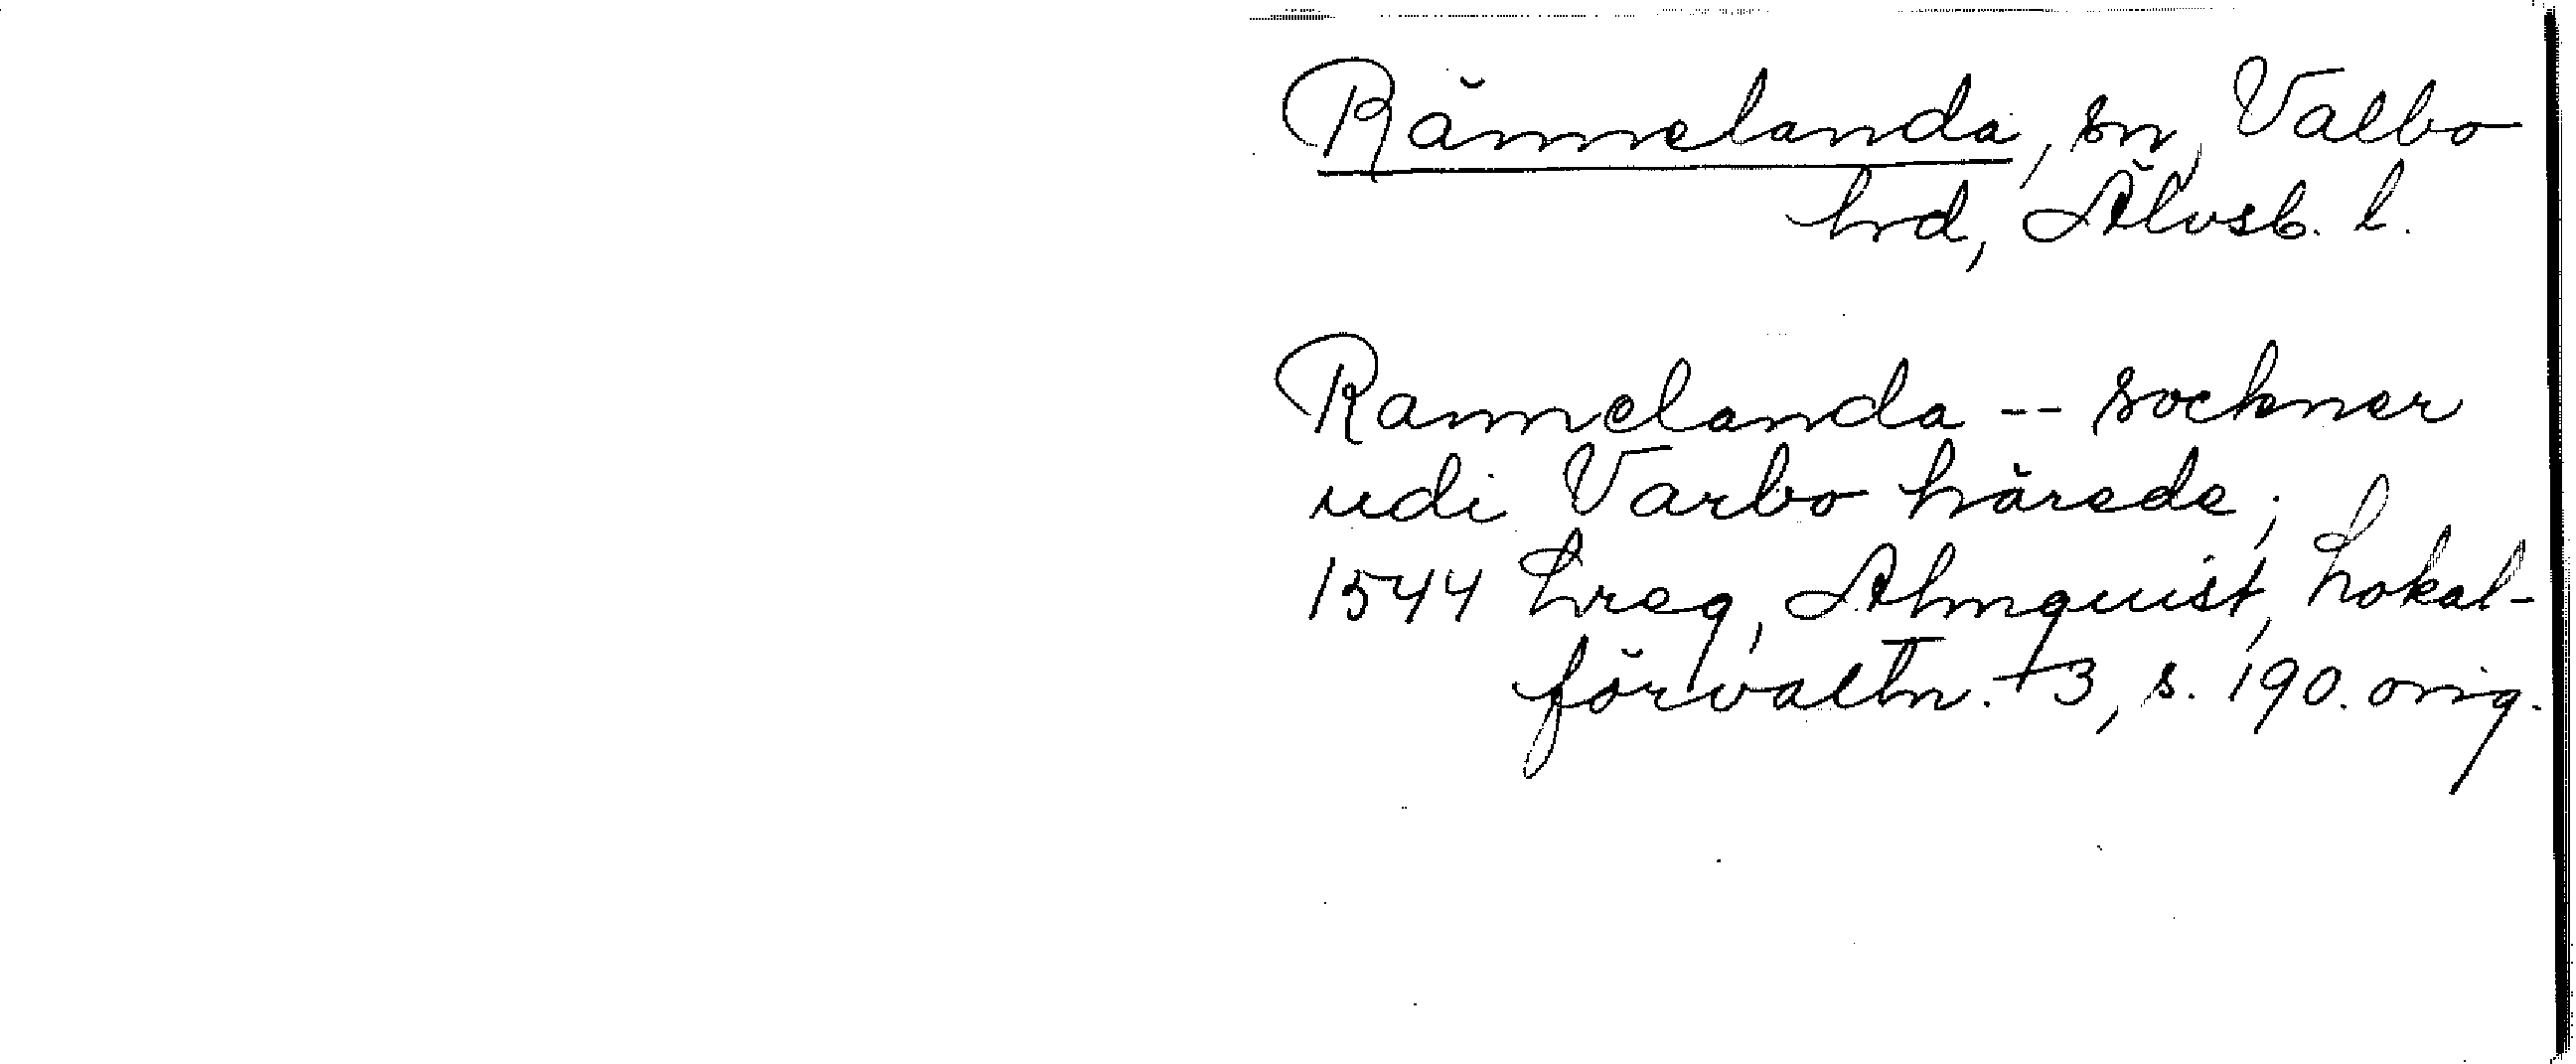 Rännelanda, sn, Valbo
hd, Älvsb. l.
Rannelanda -- sockner
udi Varbo härede;
1544 hreg, Almquist, Lokal-
förvaltn. +3, s. 190. orig.